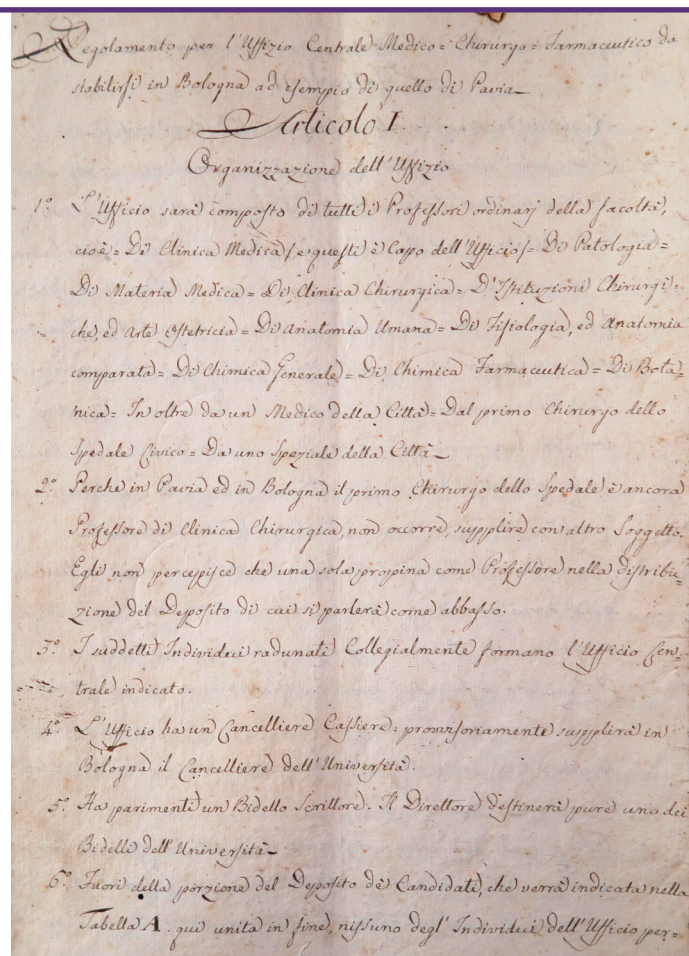 Regolamento per l'Uffizio Centrale Medico = Chirurgo = Farmaceutico da
stabilirsi in Bologna ad esempio di quello di Pavia_
Articolo I.
Organizzazione dell'Uffizio
1.º L'Ufficio sarà composto di tutti i Professori ordinarj della facoltà,
cioè = Di Clinica Medica (e questi è Capo dell'Ufficio) = Di Patologia =
Di Materia Medica = Di Clinica Chirurgica = D'Istituzioni Chirurgi =
che, ed Arte Ostetricia = Di Anatomia Umana = Di Fisiologia, ed Anatomia
comparata = Di Chimica Generale = Di Chimica Farmaceutica = Di Bota =
nica = In oltre da un Medico della Città = Dal primo Chirurgo dello
Spedale Civico = Da uno Speziale della Città_
2.º Perche in Pavia ed in Bologna il primo Chirurgo dello Spedale è ancora
Professore di Clinica Chirurgica, non occorre supplire con altro Soggetto.
Egli non percepisce che una sola propina come Professore nella distribu =
zione del Deposito di cui si parlerà come abbasso.
3.º I suddetti Individui radunati Collegialmente formano l'Ufficio Cen =
trale indicato.
4.º L'Ufficio ha un Cancelliere Cassiere: provvisoriamente supplirà in
Bologna il Cancelliere dell'Università.
5.º Ha parimenti un Bidello Scrittore. Il Direttore destinerà pure uno dei
Bidelli dell'Università_
6.º Fuori della porzione del Deposito de Candidati, che verrà indicata nella
Tabella A. qui unita in fine, nissuno degl'Individui dell'Ufficio per =